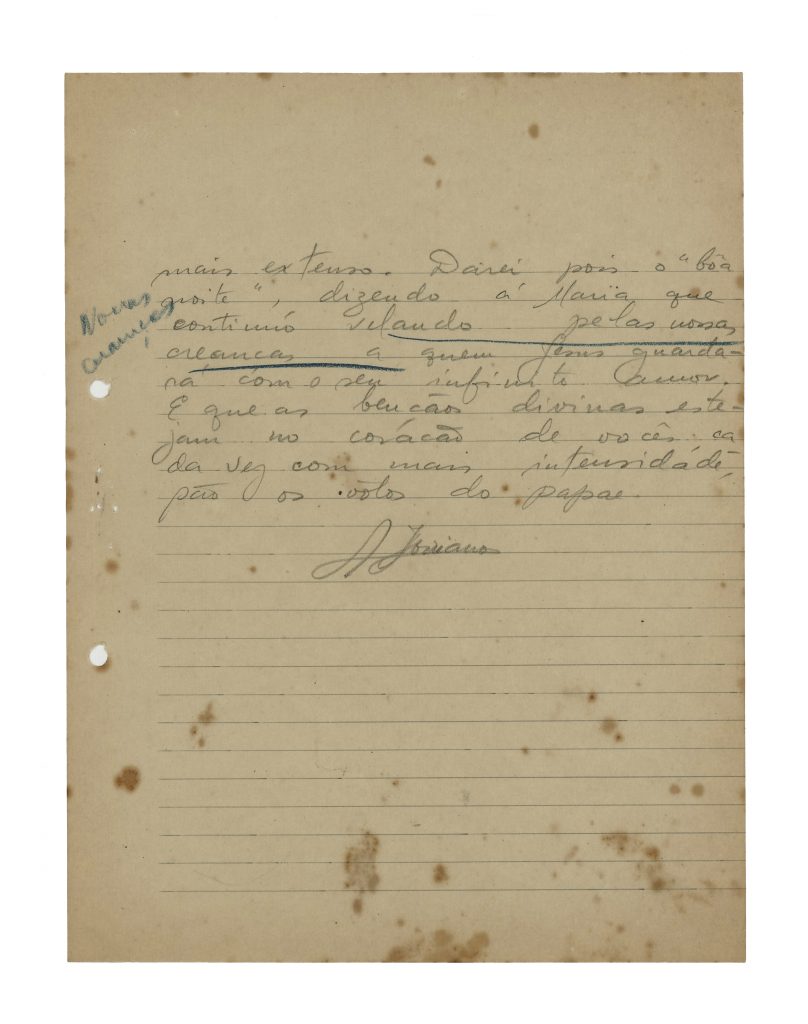 mais extenso. Darei pois o "bôa
noite", dizendo á Maria que
continúo velando pelas nossas
creanças a quem Jesus guarda-
rá com o seu infinito amor.
E que as bençãos divinas este-
jam no coração de vocês ca
da vez com mais intensidade,
são os vótos do papae.
A Joviano
Novas
creanças